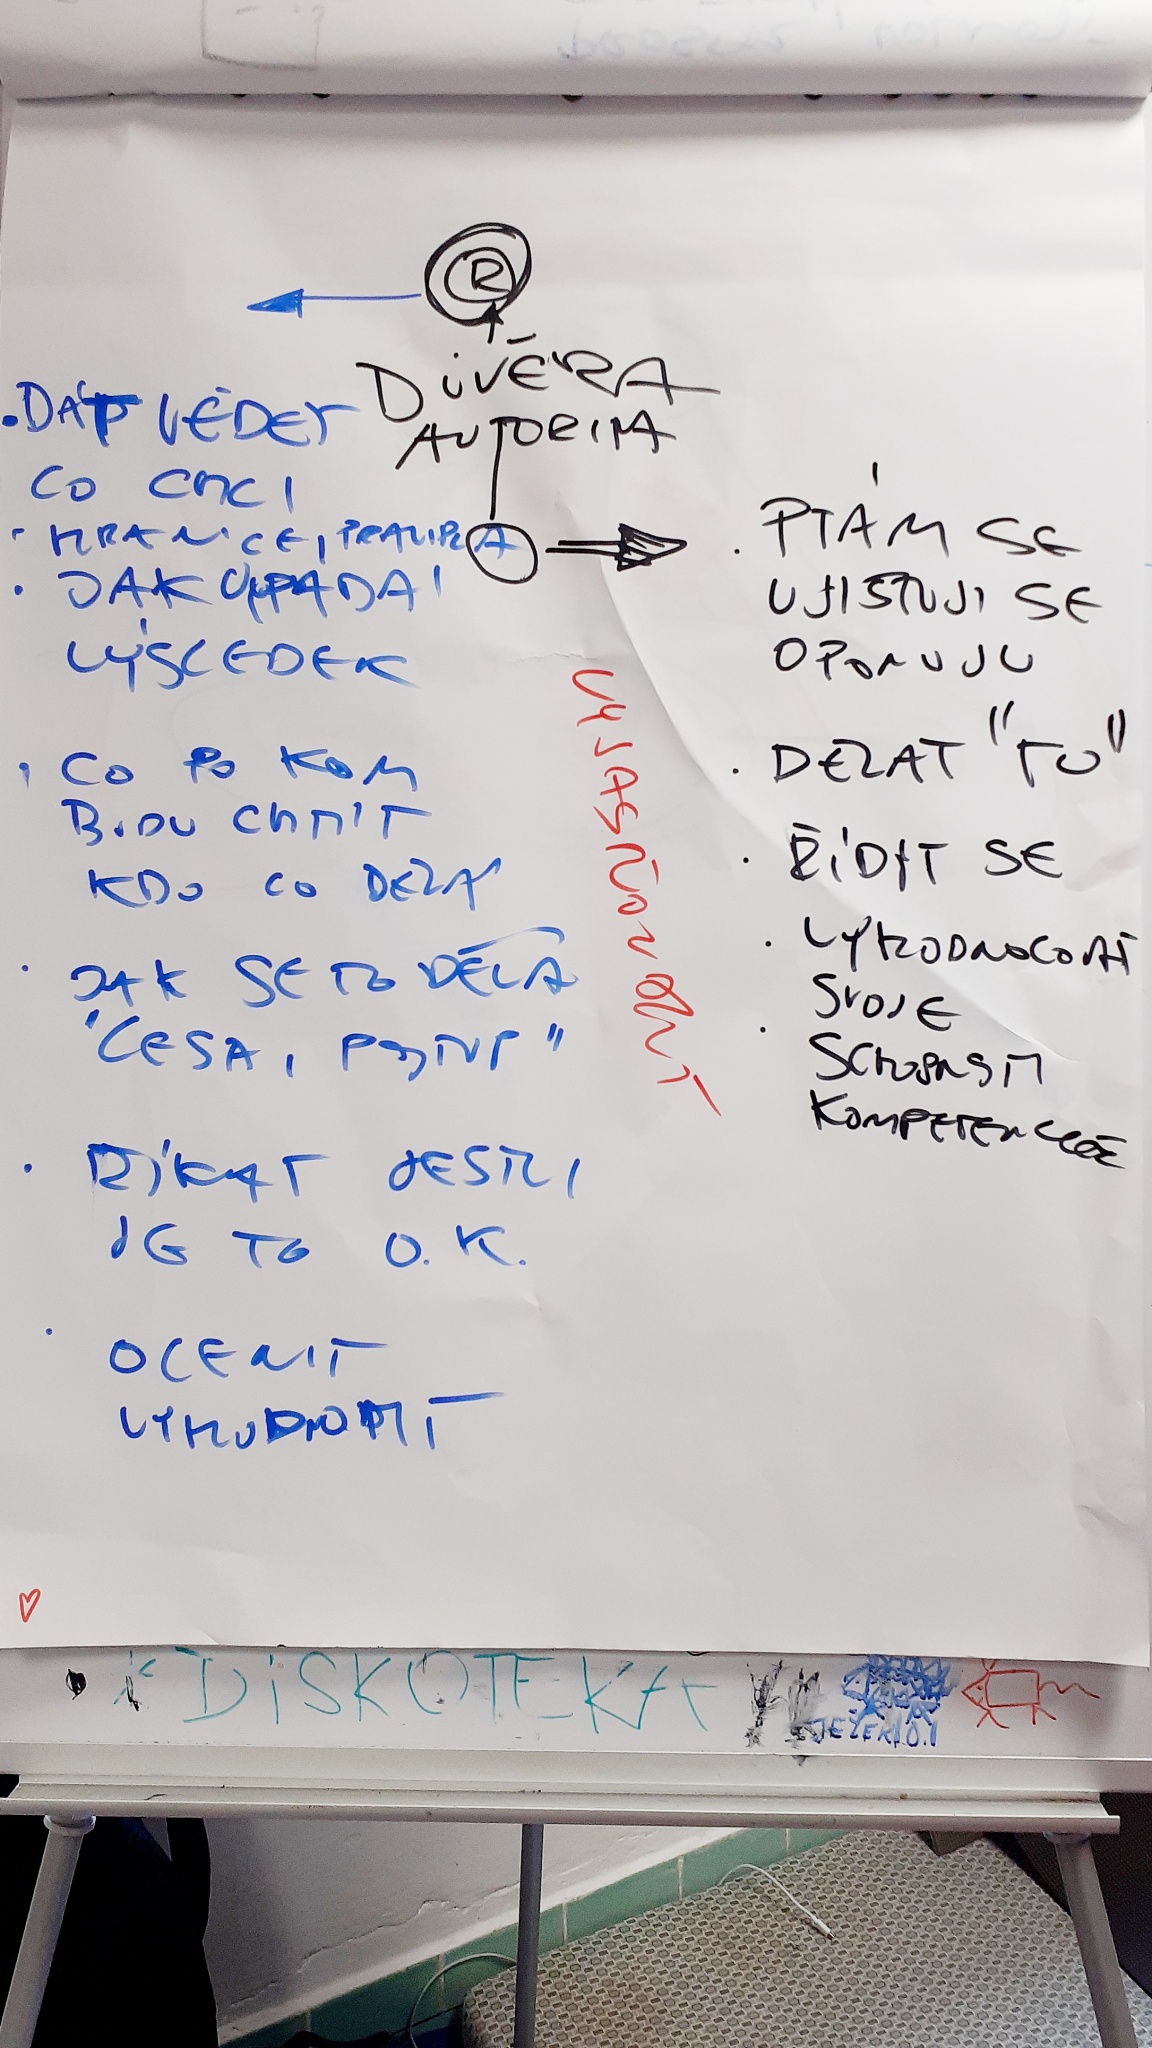 R
DŮVĚRA
AUTORITA
• DÁT VĚDĚT
CO CHCI
• HRANICE, PRAVIDLA
• JAK VYPADÁ
VÝSLEDEK
• CO PO KOM
BUDU CHTÍT
KDO CO DĚLÁ
• JAK SE TO DĚLÁ
"CESA, POSTUP"
• ŘÍKAT JESTLI
JE TO O.K.
• OCENIT
VYHODNOTIT
A
VYJASŇOVÁNÍ
• PTÁM SE
UJIŠŤUJI SE
OPONUJU
• DĚLAT "TO"
• ŘÍDIT SE
• VYHODNOCOVAT
SVOJE
• SCHOPNOSTI
KOMPETENCE
DISKOTEKA
JEŽEK